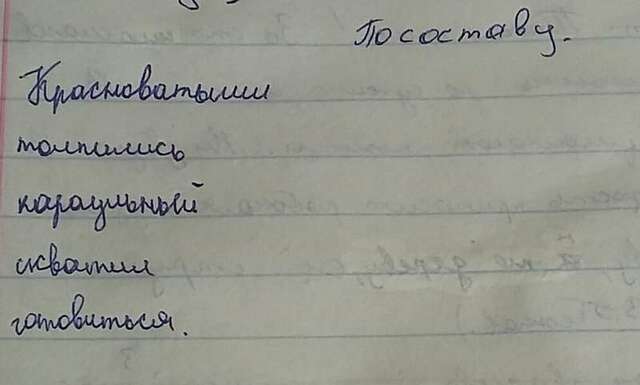 По составу.
Красноватыми
толпились
караульный
схватил
готовиться.